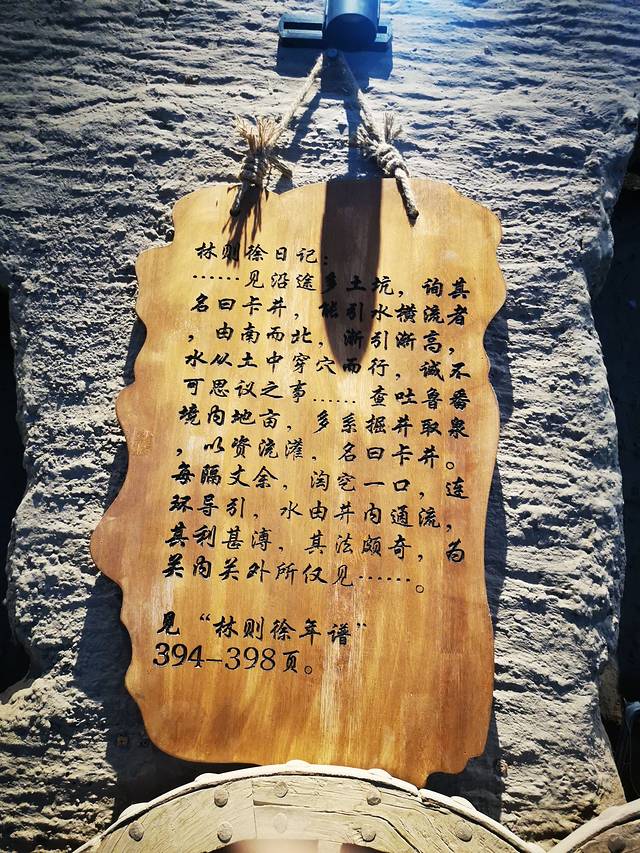 林则徐日记：
……见沿途多土坑，询其
名曰卡井，能引水横流者
，由南而北，渐引渐高，
水从土中穿穴而行，诚不
可思议之事……查吐鲁番
境内地亩，多系掘井取泉
，以资流灌，名曰卡井。
每隔丈余，淘穵一口，连
环导引，水由井内通流，
其利甚溥，其法颇奇，为
关内关外所仅见……。
见“林则徐年谱”
394-398页。